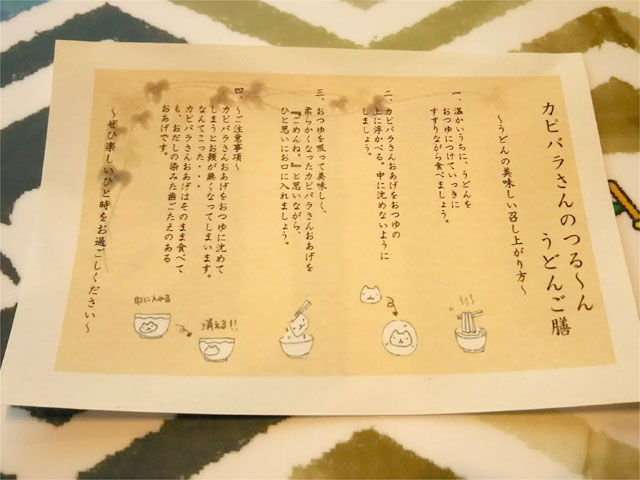 カピバラさんのつる〜ん
うどんご膳
〜うどんの美味しい召し上がり方〜
一、温かいうちに、うどんを
おつゆにつけていっきに
すすりながら食べましょう。
二、カピバラさんおあげをおつゆの
上に浮かべる。中に沈めないように
しましょう。
三、おつゆを吸って美味しく、
柔らかくなったカピバラさんおあげを
『ごめんね。』と思いながら、
ひと思いにお口に入れましょう。
四、〜ご注意事項〜
カピバラさんおあげをおつゆに沈めて
しまうとお顔が無くなってしまいます。
なんてこった・・・
カピバラさんおあげはそのまま食べて
も、おだしの染みた歯ごたえのある
おあげです。
〜ぜひ楽しいひと時をお過ごしください〜
消える!!